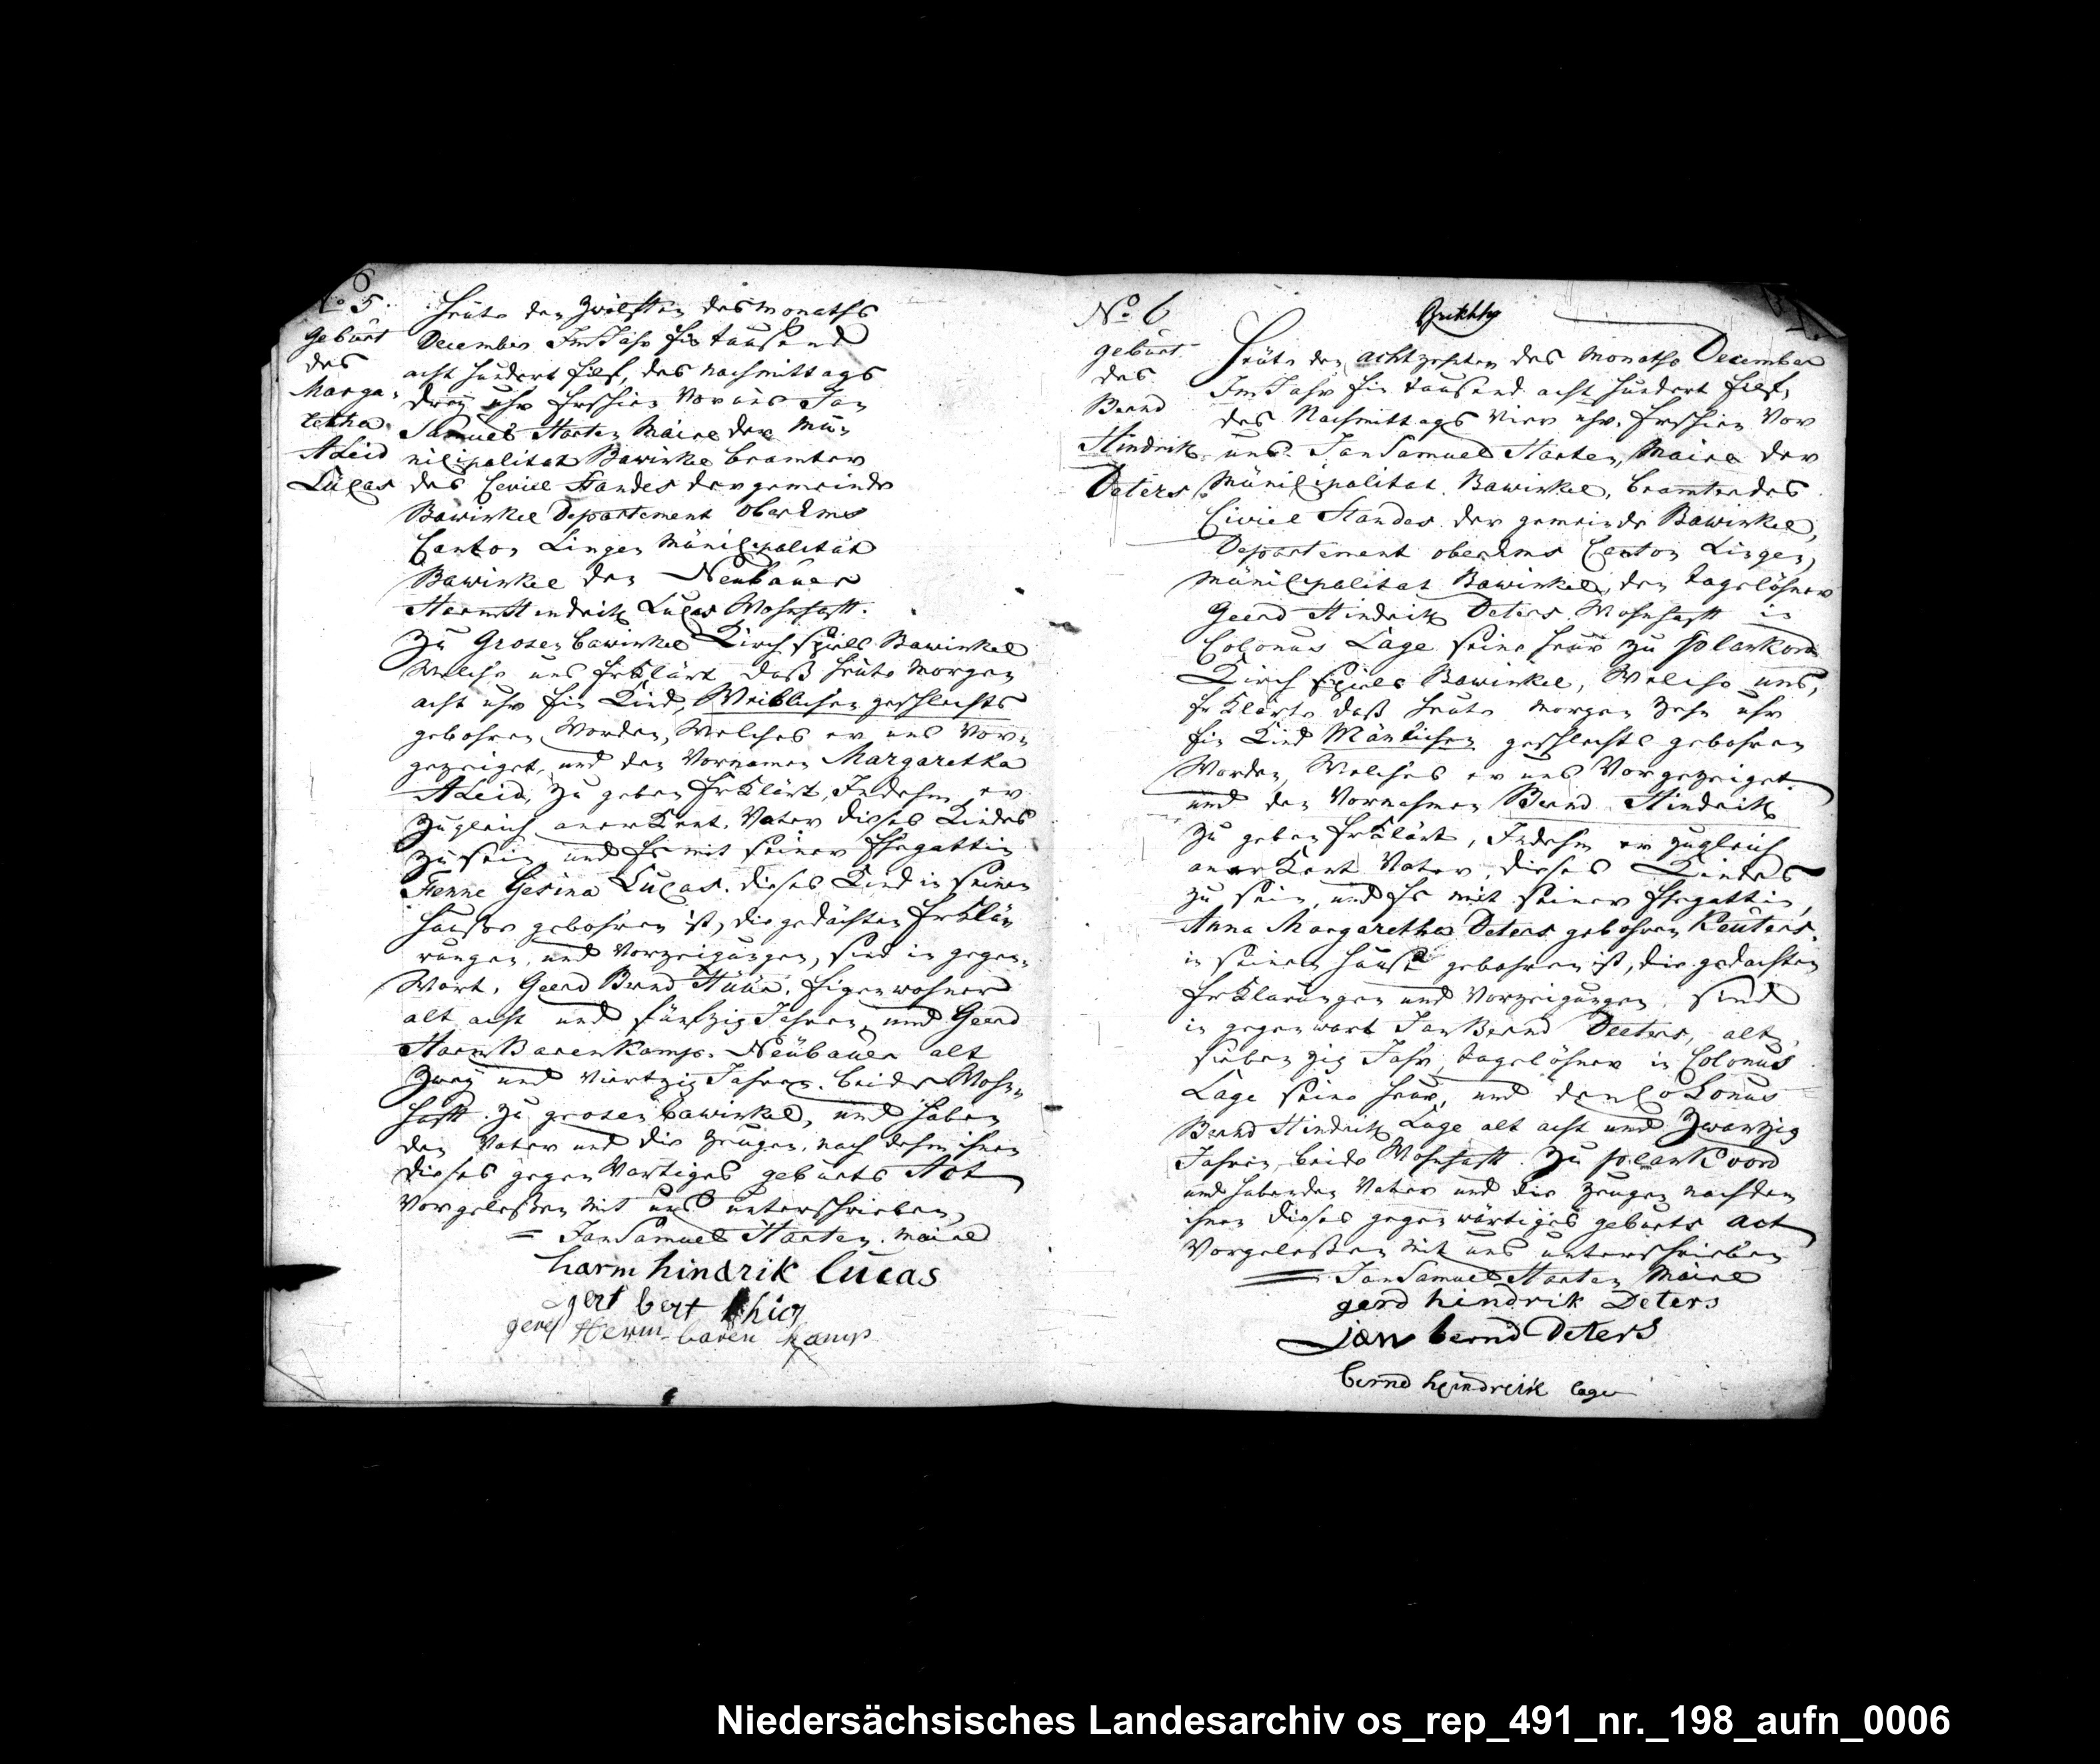 No 5.
Geburt
des
Marga-
retha
ALeid
Lucas
Heute den zwölften des monaths
December Im Jahr Ein tausend
acht hundert Eilf, des nachmittags
dreÿ uhr Erschien Vor uns Jan
Samuel Harten Maire der Mu-
nicipalitat Bawinkel beamter
des Ceviel Standes der gemeinde
Bawinkel Departement ober Ems
Canton Lingen Municipalität
Bawinkel den Neubauer
Harm Hindrik Lucas Wohnhafft.
Zu Grosen bawinkel Kirch spiels Bawinkel
Welche uns ErKlärt daß heute morgen
acht uhr Ein Kind, Weiblichen geschlechts
gebohren Worden, Welches er uns Vor-
gezeiget, und den Vornamen Margaretha
ALeid, zu geben ErKlärt, Indehm er
zugleich anerKent. Vater dieses Kindes
zu sein, und Er mit seiner Ehegattin
Fenne Gesina Lucas. dieses Kind in seinen
Hause gebohren ist, die gedachten ErKlä-
rungen, und Vorzeigungen, sind in gegen-
Wart, Geerd Bernd Eigenwohner
alt acht und fünfzig Jahren, und Geerd
Harm BarenKamp. Neubauer alt
Zweÿ und Viertzig Jahren. beide Wohn-
hafft. zu grosen bawinkel, und haben
den Vater und die zeugen, nach dehm ihnen
dieses gegen Wartiges geburts Act
Vorgeleßen mit uns unterschrieben,
= Jan Samuel Harten. maire
harm hindrik lucas
gert bert
gerd Herm baren kamp
No 6
geburt.
des
Bernd
Hindrik
Deters
Heute den achtzehnten des monaths December
Im Jahr Ein tausend acht hundert Eilf,
des Nachmittags Vier uhr. Erschien Vor
uns. Jan Samuel Harten, Maire der
Municipalitat. Bawinkel, beamter des
Civiel Standes. der gemeinde Bawinkel,
Departement ober Ems Canton Lingen,
Municipalitat Bawinkel, den tagelöhner
Geerd Hindrik Deters. Wohnhafft in
Colonus Lage seine Heur zu plankord
Kirch spiels Bawinkel, Welche uns,
ErKlärte daß heute morgen zehn uhr
Ein Kind Mänlichen geschlechts gebohren
Worden, Welches er uns Vorgezeiget
und den Vornahmen Bernd Hindrik
zu geben ErKlärt, Indehm er zugleich
anerKent Vater, dieses Kindes
zu sein, und Er mit seiner Ehegattin,
Anna Margaretha Deters gebohren Reuters.
in seinen Hause gebohren ist, die gedachten
ErKlarungen und Vorzeigungen, sind
in gegenwart Jan Bernd Deeters, alt,
sieben zig Jahr, tagelöhner in Colonus
Lage seine Heur, und den Colonus
Bernd Hindrik Lage alt acht und Zwanzig
Jahren, beide Wohnhafft. zu planKoord
und haben den Vater und die zeugen nachdem
ihnen dieses gegenwärtiges geburts act
Vorgeleßen mit uns unterschrieben
= Jan Samuel Harten Maire
gerd hindrik Deters
jan bernd Deters
bernd heindreik lage
Niedersächsisches Landesarchiv os_rep_491_nr._198_aufn_0006